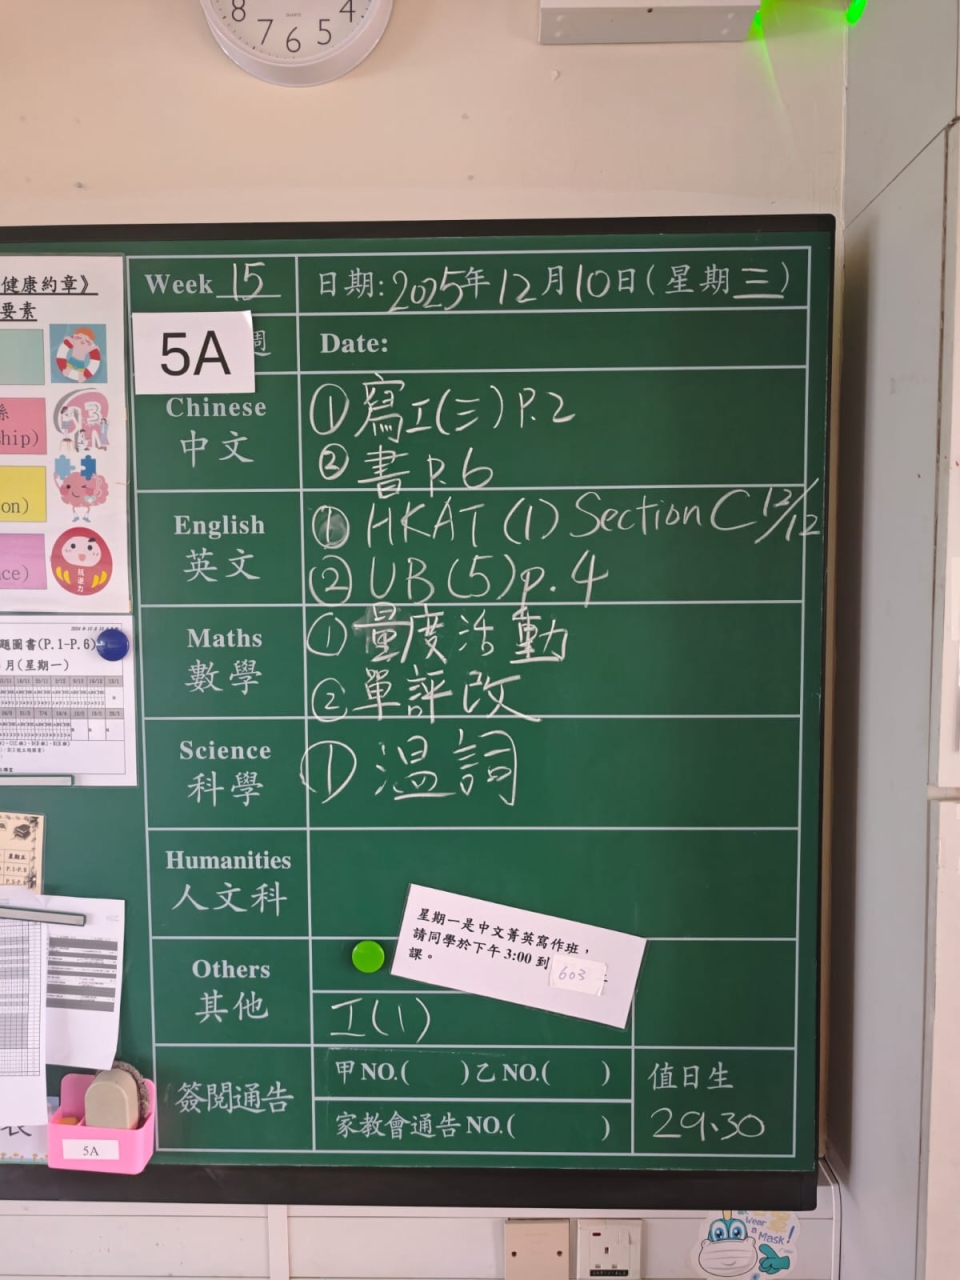 8 7 6 5 4
健康約章》
要素
hip)
on)
ce)
題圖書(P.1-P.6)
月(星期一)
Week 15
日期: 2025年12月10日(星期三)
5A
週
Date:
Chinese
中文
① 寫工(三) P.2
② 書 P.6
English
英文
① HKAT (1) Section C 12/12
② UB (5) p.4
Maths
數學
① 量度活動
② 單評改
Science
科學
① 温詞
Humanities
人文科
星期一是中文菁英寫作班，
請同學於下午 3:00 到 603
課。
Others
其他
工(1)
簽閱通告
甲 NO.( )乙 NO.( )
家教會通告 NO.( )
值日生
29、30
5A
Wear
a
Mask!